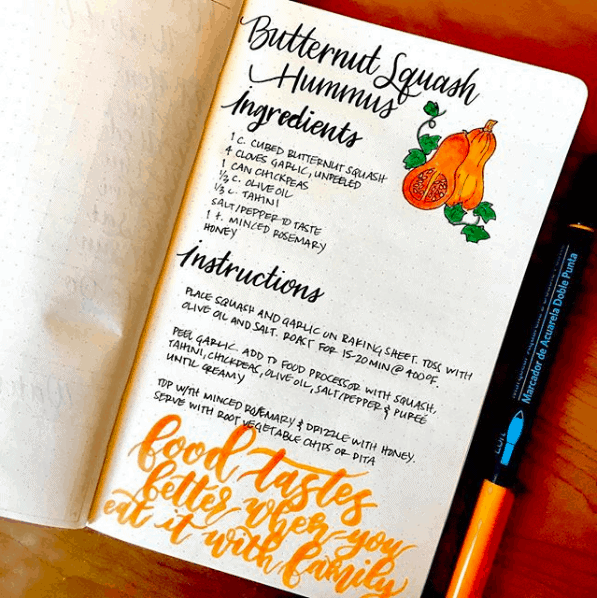 Butternut Squash
Hummus
Ingredients
1 C. CUBED BUTTERNUT SQUASH
4 CLOVES GARLIC, UNPEELED
1 CAN CHICKPEAS
1/3 C. OLIVE OIL
1/3 C. TAHINI
SALT/PEPPER TO TASTE
1 t. MINCED ROSEMARY
HONEY
Instructions
PLACE SQUASH AND GARLIC ON BAKING SHEET. TOSS WITH
OLIVE OIL AND SALT. ROAST FOR 15-20 MIN @ 400°F.
PEEL GARLIC. ADD TO FOOD PROCESSOR WITH SQUASH,
TAHINI, CHICKPEAS, OLIVE OIL, SALT/PEPPER & PUREE
UNTIL CREAMY
TOP W/TH MINCED ROSEMARY & DRIZZLE WITH HONEY.
SERVE WITH ROOT VEGETABLE CHIPS OR PITA
food tastes
better when you
eat it with family
Marcador de Acuarela Doble Punta